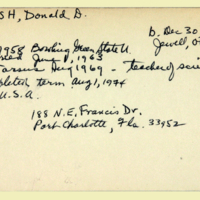 SH, Donald D.
b. Dec 30
Jewell, O
1958 Bowling Green State U.
ned June 1, 1963
Tarsus Aug 1969 - teacher of sci
pleted term Aug 1, 1974
U.S.A.
188 N.E. Francis Dr.
Port Charlotte, Fla. 33952